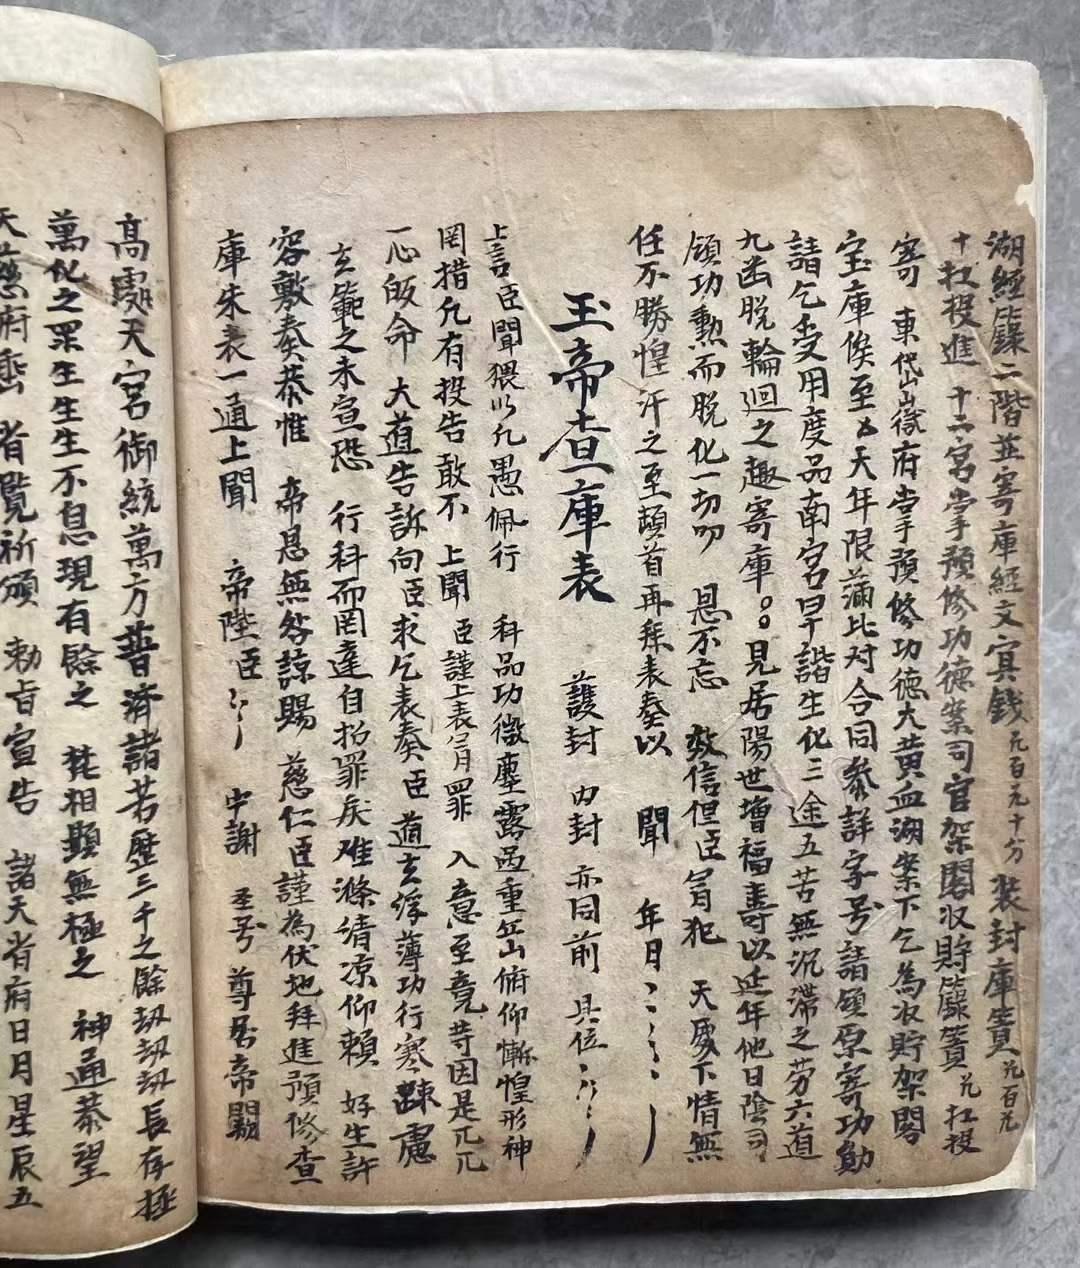 湖經籙二階並寄庫經文冥錢冗百冗十分 裝封庫簣冗百冗
十扛投進 十二宮掌預修功德案司官架閣收貯籙簣冗扛投
寄 東岱山嶽府掌預修功德大黃血湖案下乞為收貯架閣
宝庫俟至 天年限滿比对合同叅詳字号請領原寄功勛
請乞受用度品南宮早諧生化三途五苦無沉滯之労六道
九幽脱輪迴之趣寄庫○○見居陽世增福壽以延年他日陰司
領功勳而脱化一切 恩不忘 效信但臣冐犯 天威下情無
任不勝惶汗之至頓首再拜表奏以 聞 年 日
玉帝查庫表 護封 内封亦同前 具位
上言臣聞猥以凢愚佩行 科品功微塵露過重丘山俯仰慚惶形神
罔措凢有投告敢不 上聞 臣謹上表爲 入意至意䓁因是兀兀
一心皈命 大道告訴向臣求乞表奏臣 道玄浮薄功行寒踈慮
玄範之未宣恐 行科而罔達自招罪戾难滌清凉仰賴 好生許
容敷奏恭惟 帝恩無咎諒賜 慈仁臣謹為伏地拜進預修查
庫朱表一通上聞 帝陛臣 中謝 圣号 尊居帝闕
高處天宮御統萬方普濟諸苦歷三千之餘劫劫劫長存極
萬化之眾生生生不息現有餘之 梵相顯無極之 神通恭望
天慈府垂 省覽祈頒 勅旨宣告 諸天省府日月星辰五